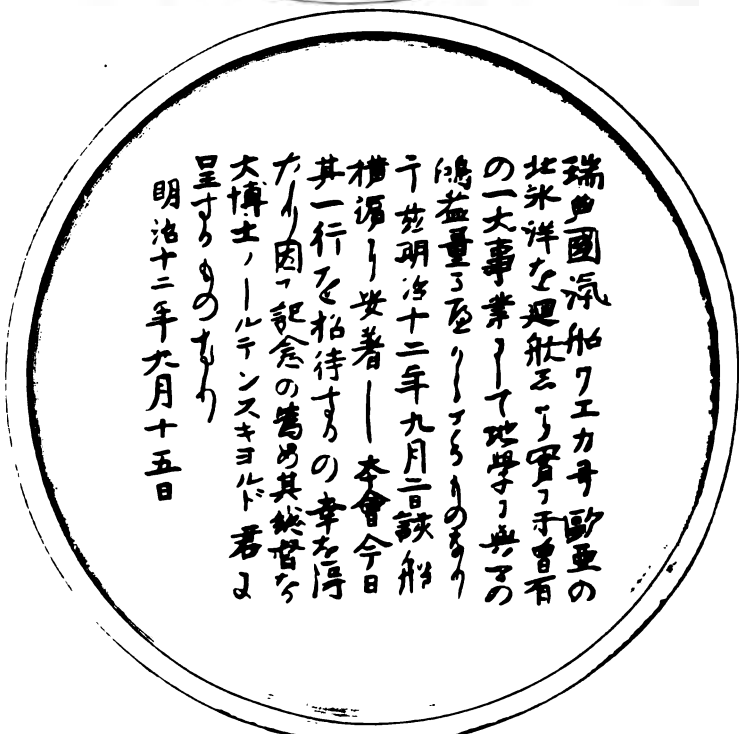 瑞典國滊船ワエカ号歐亜の
北氷洋を廻航せし実に未曽有
の一大事業にして地學に與ふるの
鴻益量る
于茲明治十二年九月二日該船
横濵に安着し本會今日
其一行を招待するの幸を得
たり因て記念の為め其総督な
大博士ノールデンスキヨルド君に
呈するものなり
明治十二年九月十五日